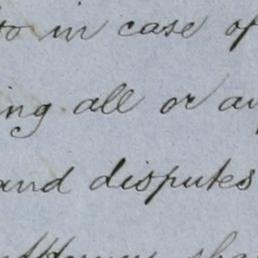 to in case of
ing all or
and disputes